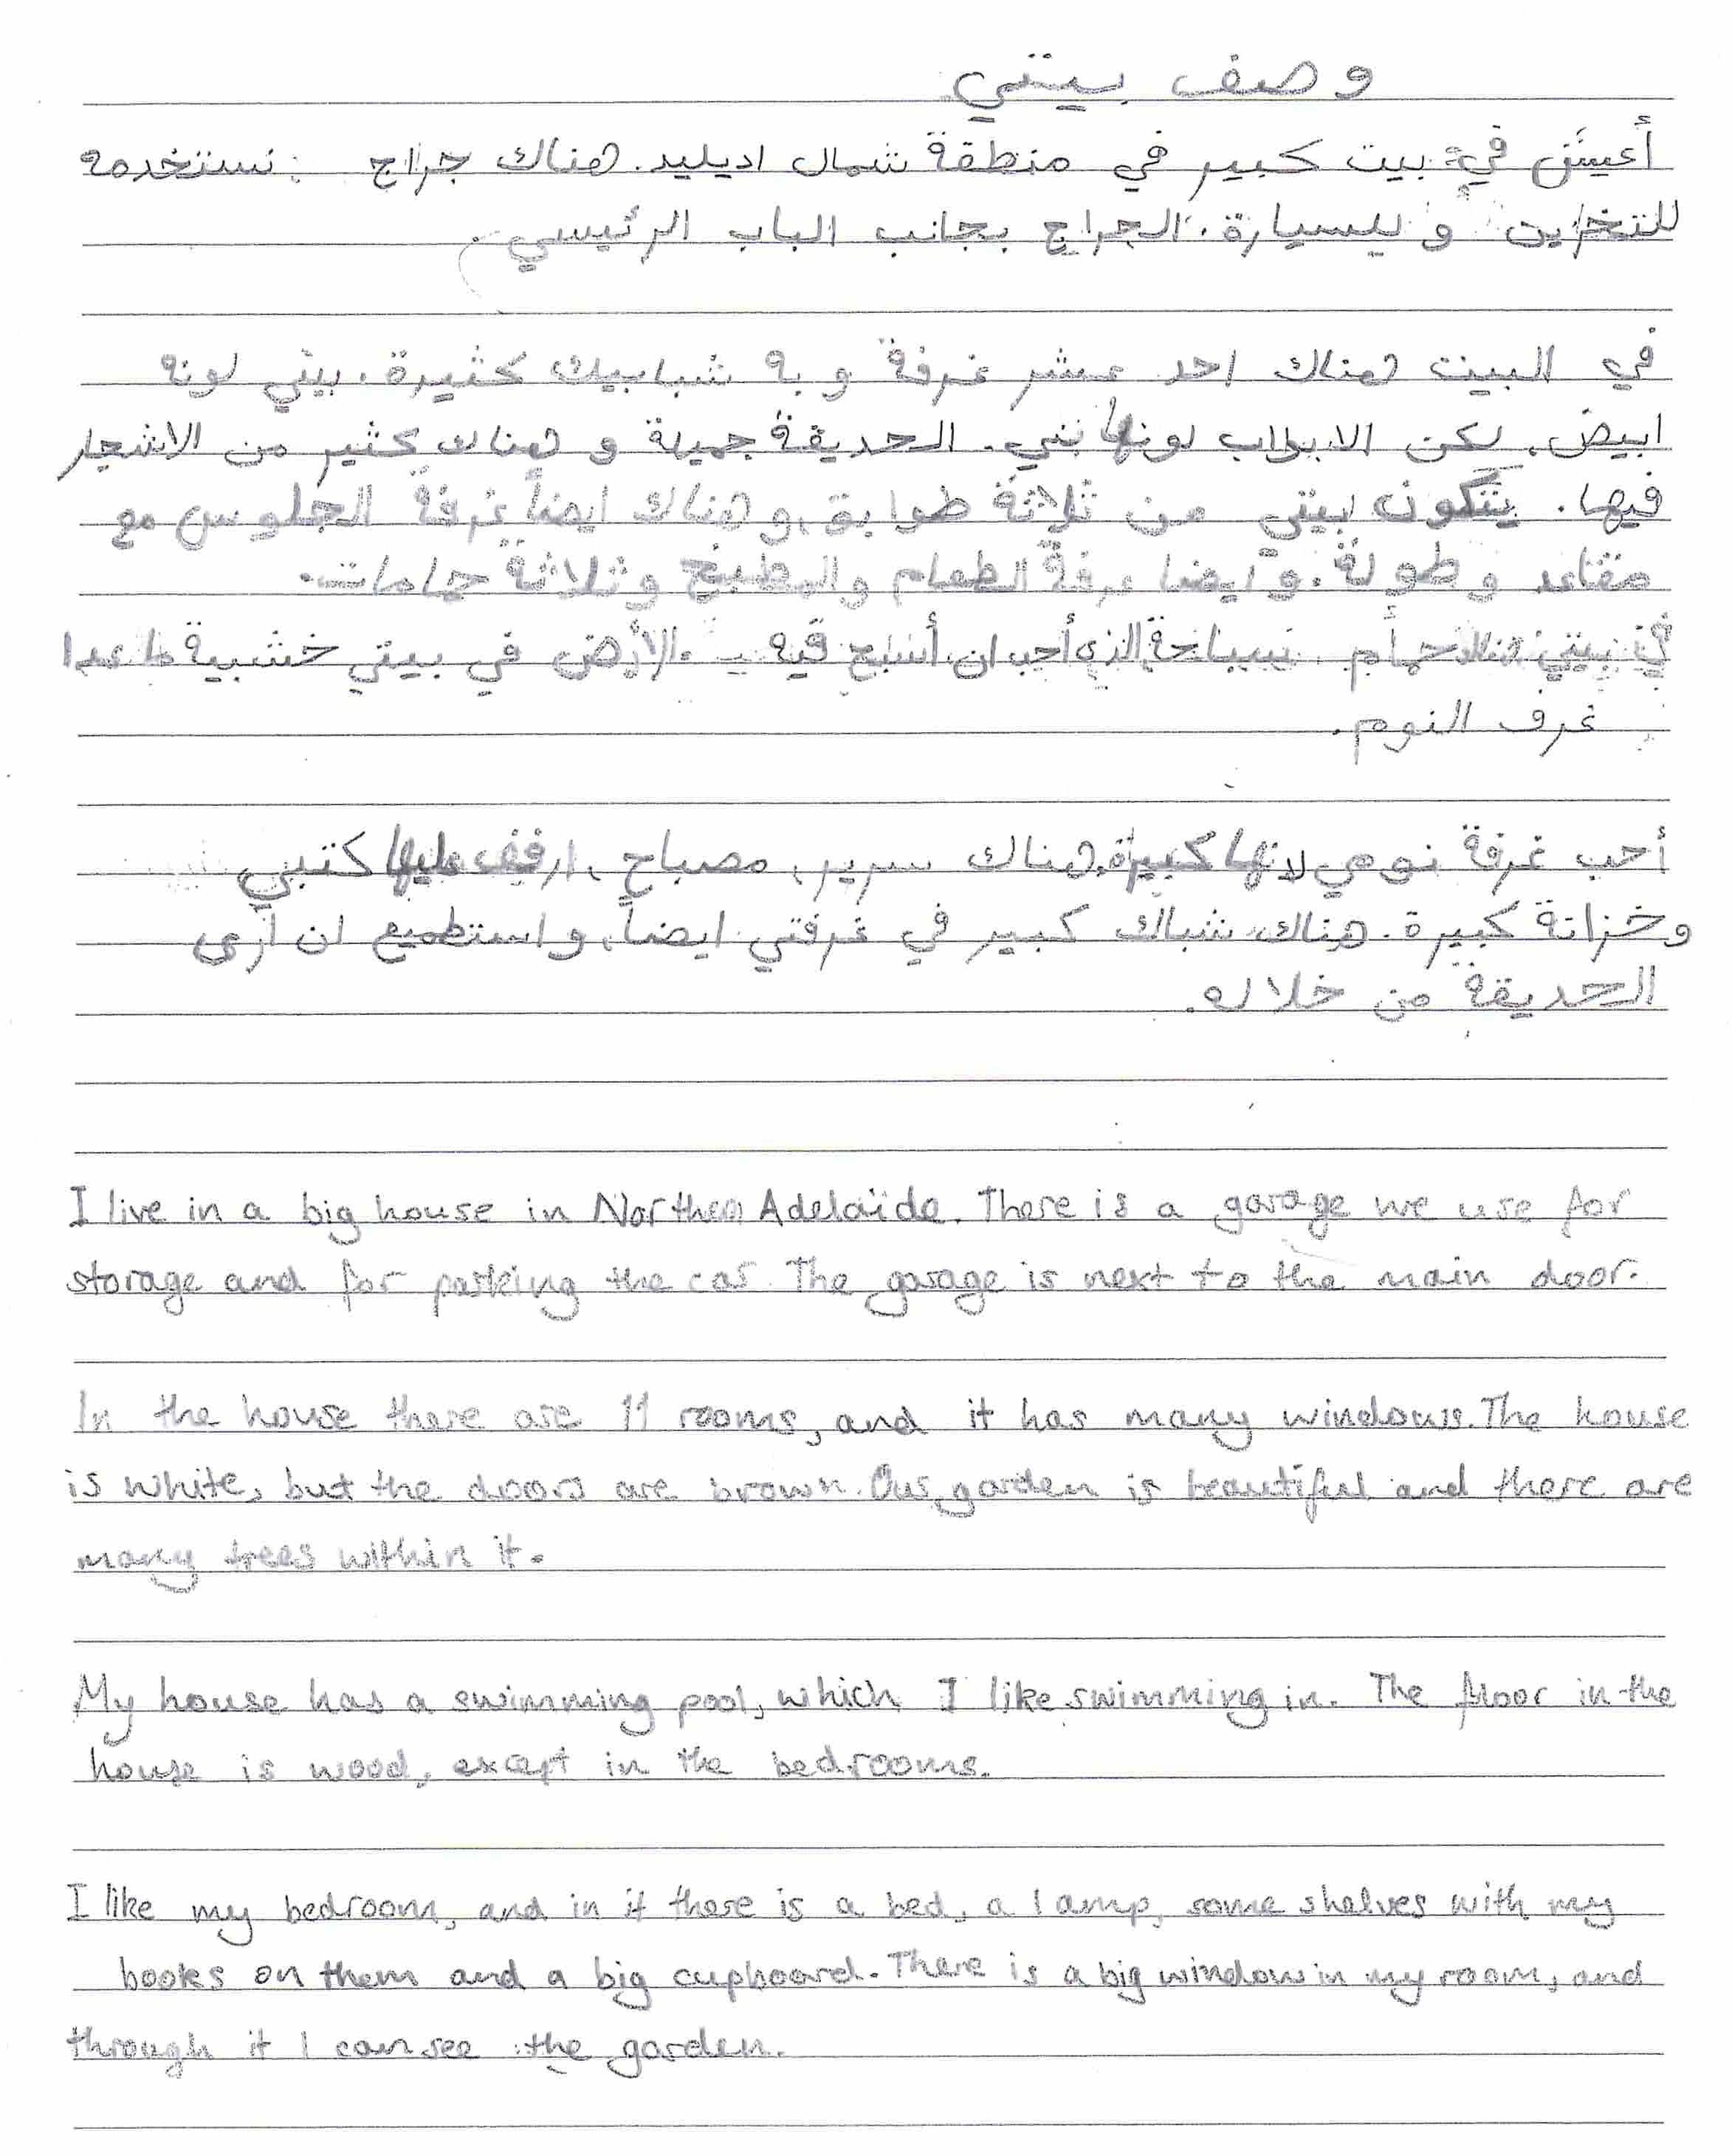 وصف بيتي
أعيش في بيت كبير في منطقة شمال اديليد. هناك جراج نستخدمه
للتخزين و للسيارة. الجراج بجانب الباب الرئيسي
في البيت هناك احد عشر غرفة و به شبابيك كثيرة. بيتي لونه
ابيض. لكن الابواب لونها بني. الحديقة جميلة و هناك كثير من الاشجار
فيها. يتكون بيتي من ثلاثة طوابق، و هناك ايضاً غرفة الجلوس مع
مقاعد و طولة. و ايضا غرفة الطعام والمطبخ و ثلاثة حمامات.
في بيتي حمام سباحة الذي أحب ان أسبح فيه. الأرض في بيتي خشبية ما عدا
غرف النوم.
أحب غرفة نومي لانها كبيرة. هناك سرير، مصباح، ارفف عليها كتبي
و خزانة كبيرة. هناك شباك كبير في غرفتي ايضاً، و استطيع ان أرى
الحديقة من خلاله.
I live in a big house in Northen Adelaide. There is a garage we use for
storage and for parking the car. The garage is next to the main door.
In the house there are 11 rooms, and it has many windows. The house
is white, but the doors are brown. Our garden is beautiful and there are
many trees within it.
My house has a swimming pool, which I like swimming in. The floor in the
house is wood, except in the bedrooms.
I like my bedroom, and in it there is a bed, a lamp, some shelves with my
books on them and a big cupboard. There is a big window in my room, and
through it I can see the garden.